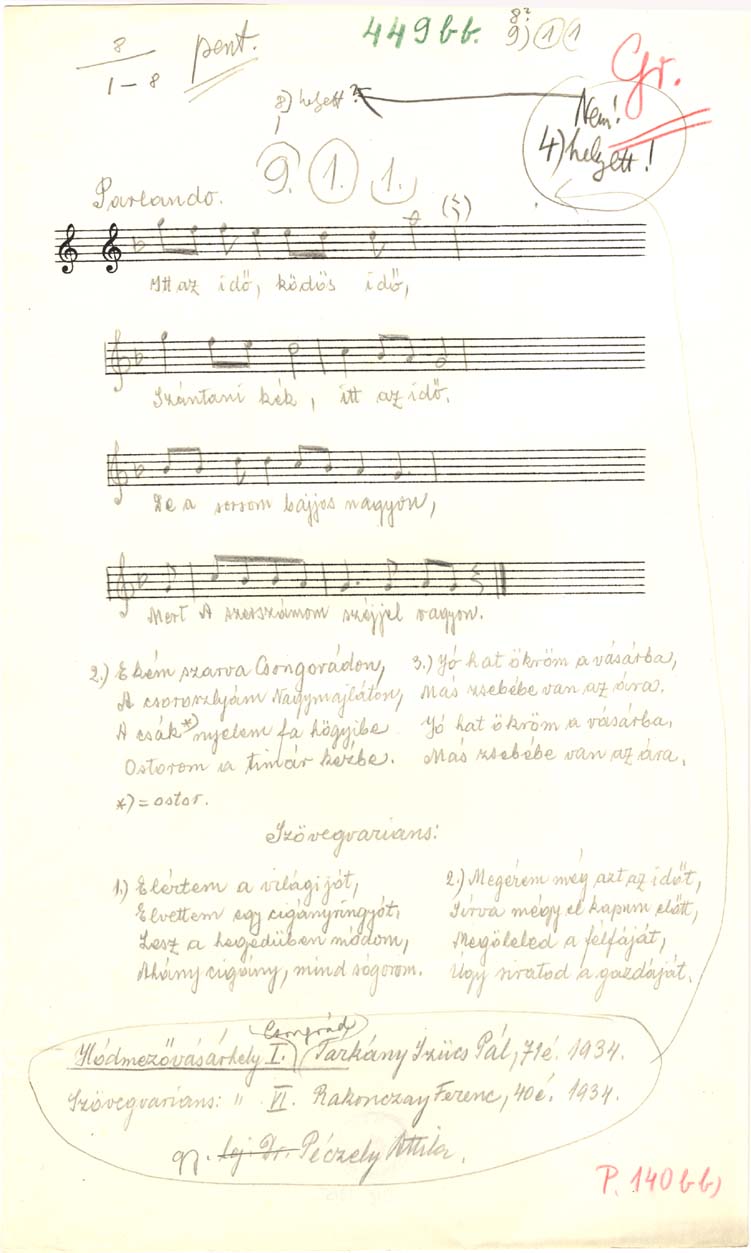 8
1 – 8
pent.
449 bb.
8?
9) 1 1
Gr.
8) helyett?
Nem!
4) helyett!
9. 1. 1.
Parlando.
Itt az idő, ködös idő,
Szántani kék, itt az idő.
De a sorsom bajjos nagyon,
Mert A szerszámom széjjel vagyon.
2.) Ekém szarva Csongorádon,
A csoroszlyám Nagymajláton,
A csák *) nyelem fa högyibe
Ostorom a timár kézbe.
*) = ostor.
3.) Jó hat ökröm a vásárba,
Más zsebébe van az ára.
Jó hat ökröm a vásárba,
Más zsebébe van az ára.
Szövegvarians:
1.) Elértem a világiját,
Elvettem egy cigányringyót,
Lesz a hegedüben módom,
Ahány cigány, mind sógorom.
2.) Megérem még azt az időt,
Sírva mégy el kapum előtt,
Megöleled a félfáját,
Úgy siratod a gazdáját.
Csongrád
Hódmezővásárhely I. Tarkány Szücs Pál, 71é. 1934.
Szövegvarians: " VI. Rakonczay Ferenc, 40é. 1934.
gy. lej. Dr. Péczely Attila.
P. 140 bb)